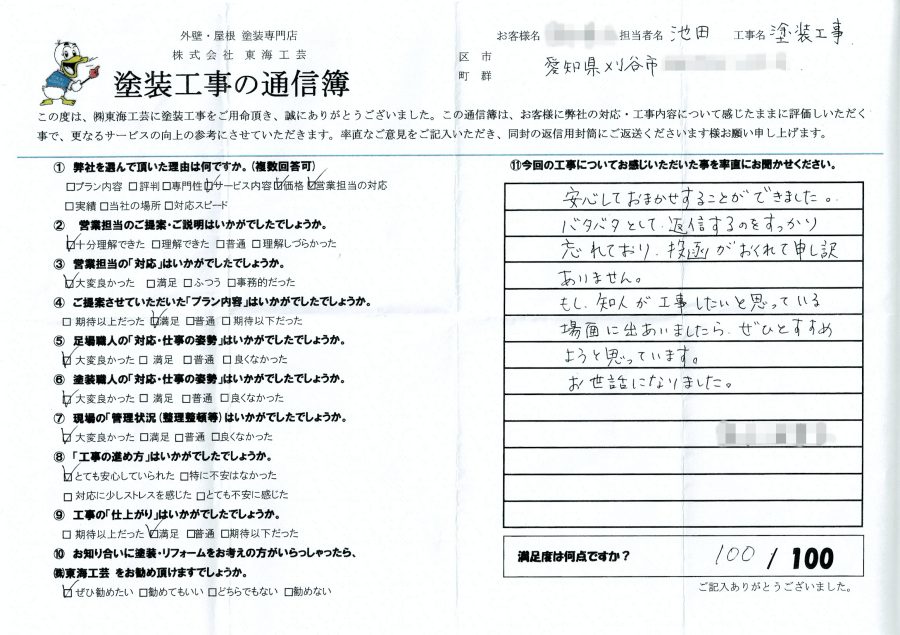 外壁・屋根 塗装専門店
株式会社 東海工芸
塗装工事の通信簿
お客様名 担当者名 池田 工事名 塗装工事
区 市
町 群
愛知県刈谷市
この度は、㈱東海工芸に塗装工事をご用命頂き、誠にありがとうございました。この通信簿は、お客様に弊社の対応・工事内容について感じたままに評価しいただく
事で、更なるサービスの向上の参考にさせていただきます。率直なご意見をご記入いただき、同封の返信用封筒にご返送くださいます様お願い申し上げます。
① 弊社を選んで頂いた理由は何ですか。(複数回答可)
□プラン内容 □評判 □専門性 ☑サービス内容 ☑価格 ☑営業担当の対応
□実績 □当社の場所 □対応スピード
② 営業担当のご提案・ご説明はいかがでしたでしょうか。
☑十分理解できた □理解できた □普通 □理解しづらかった
③ 営業担当の「対応」はいかがでしたでしょうか。
☑大変良かった □満足 □ふつう □事務的だった
④ ご提案させていただいた「プラン内容」はいかがでしたでしょうか。
□期待以上だった ☑満足 □普通 □期待以下だった
⑤ 足場職人の「対応・仕事の姿勢」はいかがでしたでしょうか。
☑大変良かった □満足 □普通 □良くなかった
⑥ 塗装職人の「対応・仕事の姿勢」はいかがでしたでしょうか。
☑大変良かった □満足 □普通 □良くなかった
⑦ 現場の「管理状況(整理整頓等)はいかがでしたでしょうか。
☑大変良かった □満足 □普通 □良くなかった
⑧ 「工事の進め方」はいかがでしたでしょうか。
☑とても安心していられた □特に不安はなかった
□対応に少しストレスを感じた □とても不安に感じた
⑨ 工事の「仕上がり」はいかがでしたでしょうか。
□期待以上だった ☑満足 □普通 □期待以下だった
⑩ お知り合いに塗装・リフォームをお考えの方がいらっしゃったら、
㈱東海工芸 をお勧め頂けますでしょうか。
☑ぜひ勧めたい □勧めてもいい □どちらでもない □勧めない
⑪今回の工事についてお感じいただいた事を率直にお聞かせください。
安心しておまかせすることができました。
バタバタとして、返信するのをすっかり
忘れており、投函がおくれて申し訳
ありません。
もし、知人が工事したいと思っている
場面に出あいましたら、ぜひとすすめ
ようと思っています。
お世話になりました。
満足度は何点ですか? 100 / 100
ご記入ありがとうございました。